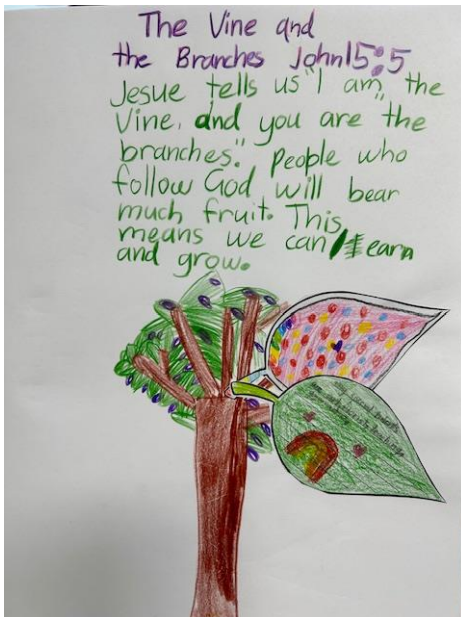 The Vine and
the Branches John15:5
Jesue tells us "I am the
Vine, and you are "the
branches." people who
follow God will bear
much fruit. This
means we can learn
and grow.